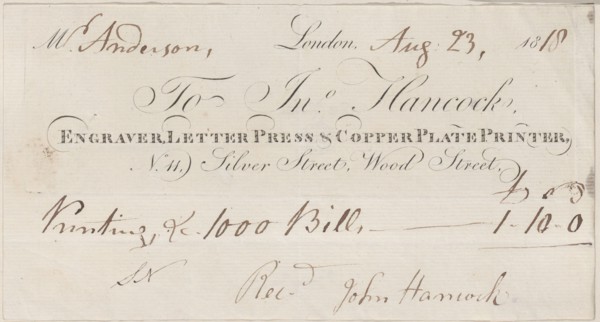 Mr. Anderson, London. Aug. 23, 1818
To Jno. Hancock,
ENGRAVER, LETTER PRESS & COPPER PLATE PRINTER,
N. 11,) Silver Street, Wood Street.
Printing, &c. 1000 Bills — 1-10-0
Recd. John Hancock